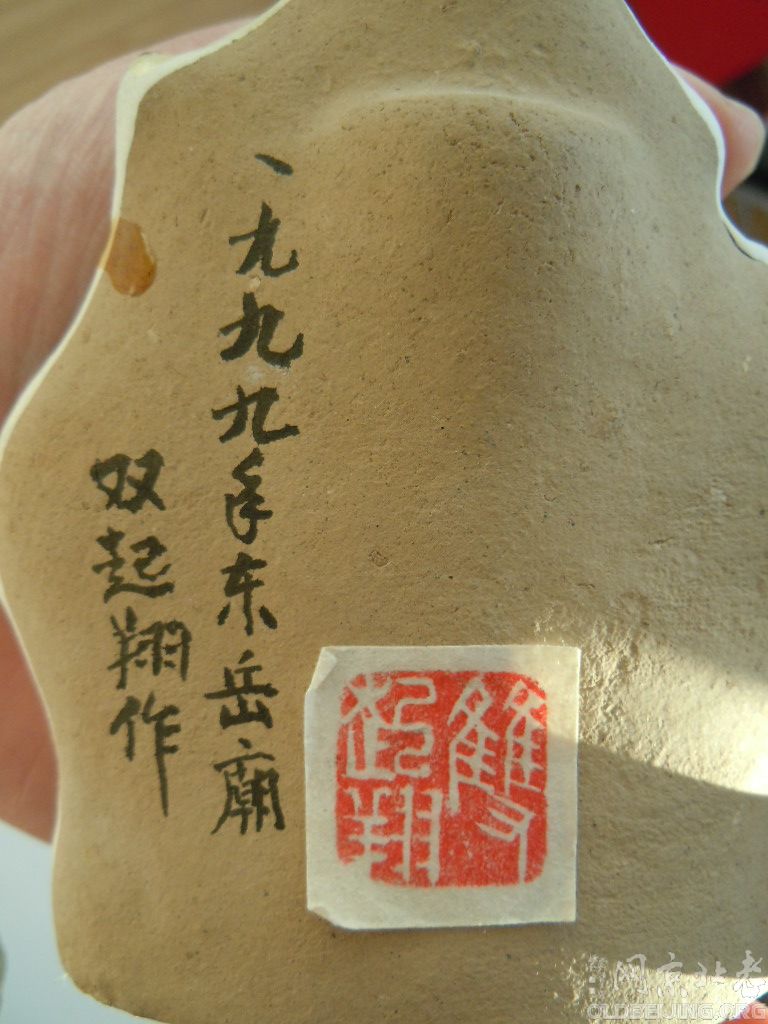 一九九九年东岳廟
双起翔作
雙起翔
老北京网
OLDBEIJING.ORG